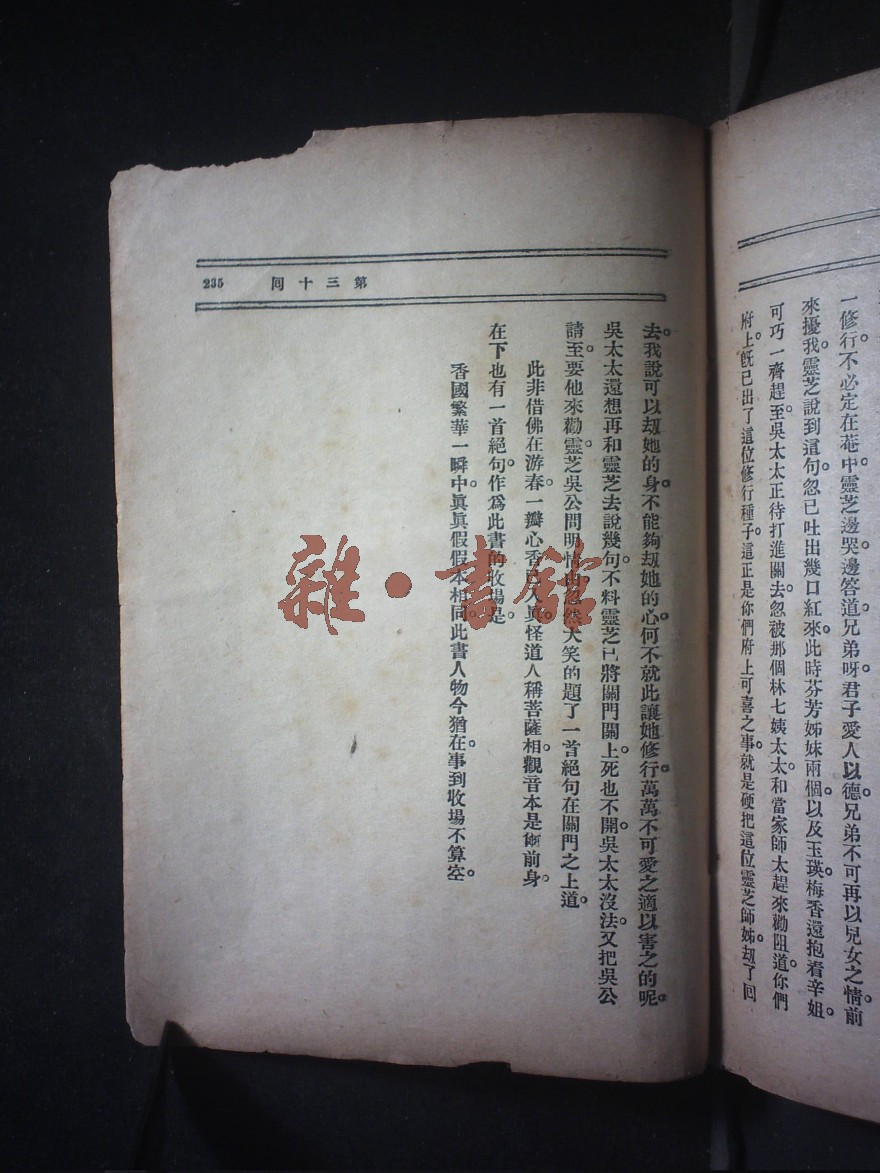 一修行。不必定在菴中靈芝邊哭邊答道兄弟呀君子愛人以德。兄弟不可再以兒女之情前
來擾我。靈芝說到這句。忽已吐出幾口紅來。此時芬芳姊妹兩個。以及玉瑛梅香還抱着辛姐。
可巧一齊趕至。吳太太正待打進關去。忽被那個林七姨太太。和當家師太趕來勸阻道你們
府上。旣已出了這位修行種子。這正是你們府上可喜之事。就是硬把這位靈芝師姊。刼了回
第三十回 235
去。我說可以刼她的身。不能夠刼她的心。何不就此讓她修行。萬萬不可愛之適以害之的呢。
吳太太還想再和靈芝去說幾句。不料靈芝已將關門關上。死也不開。吳太太沒法。又把吳公
請至。要他來勸靈芝。吳公問明情由。忽然大笑的題了一首絕句在關門之上道。
此非借佛在游春。一瓣心香已入眞。怪道人稱菩薩相。觀音本是前身。
在下也有一首絕句。作爲此書的收場。是。
香國繁華一瞬中。眞眞假假本相同。此書人物今猶在。事到收場不算空。
雜·書館